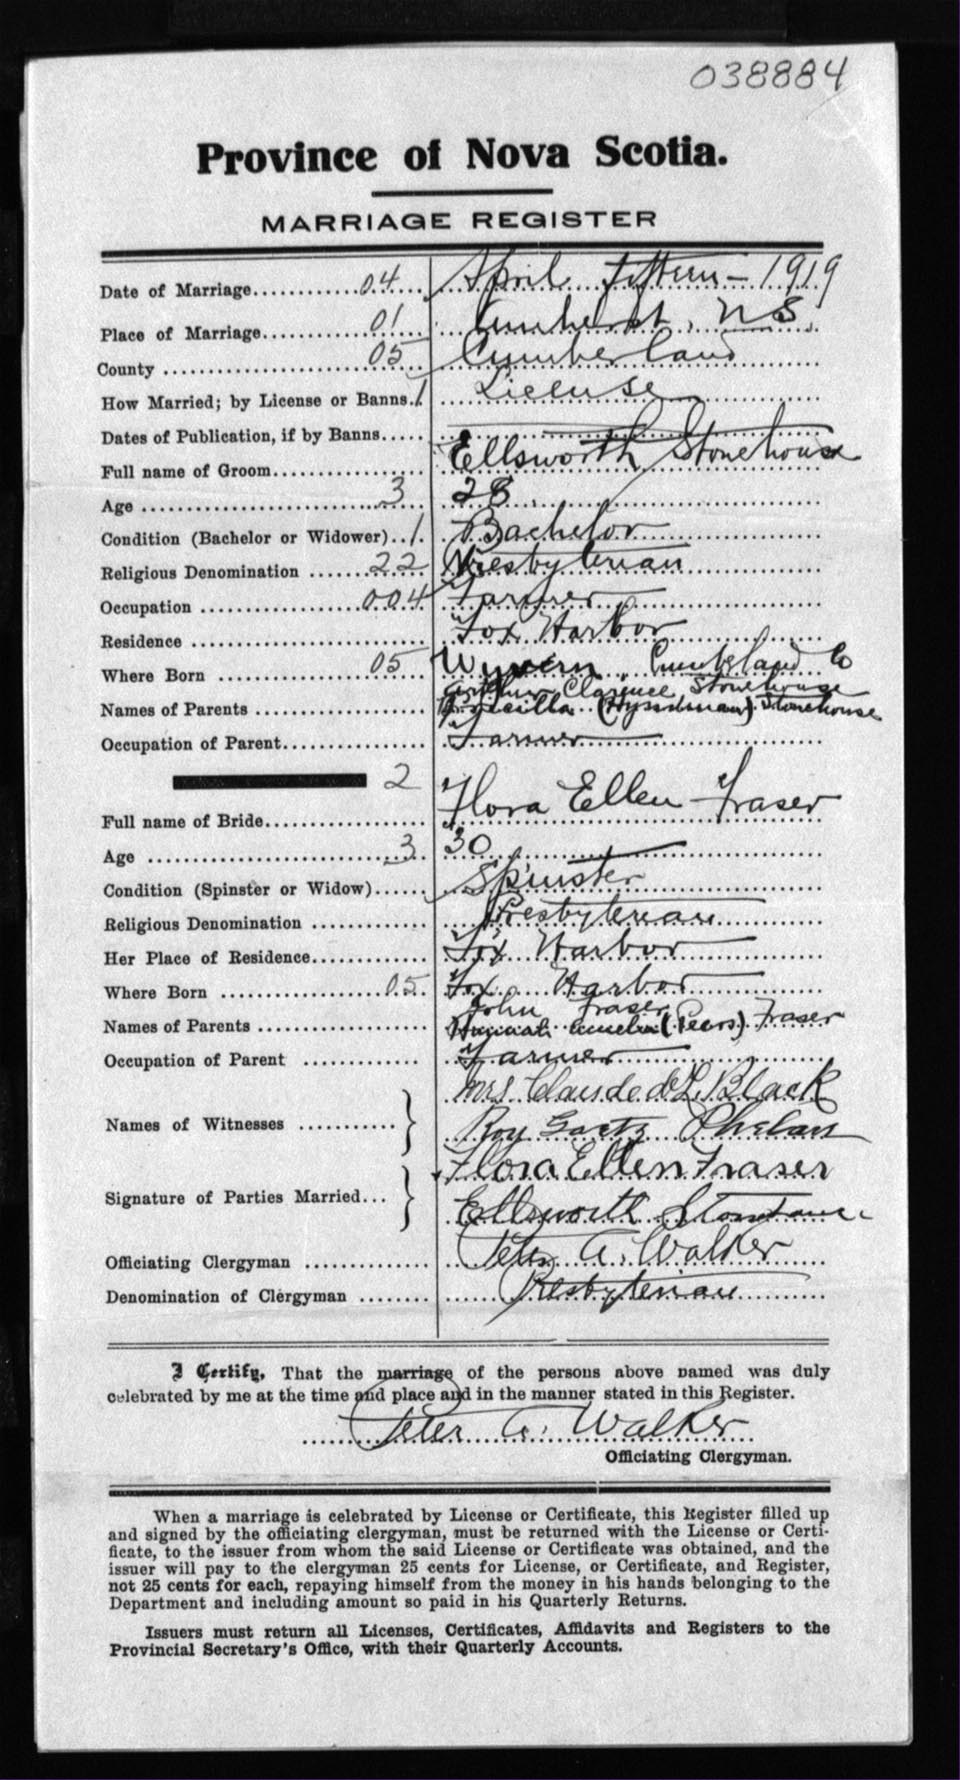 038884
Province of Nova Scotia.
MARRIAGE REGISTER
Date of Marriage............04. April fifteen - 1919
Place of Marriage............01. Amherst, N S.
County ............05 Cumberland
How Married; by License or Banns. 1 License
Dates of Publication, if by Banns.....
Full name of Groom............ Ellsworth Stonehouse
Age ............3. 28
Condition (Bachelor or Widower)..1. Bachelor
Religious Denomination ......22 Presbyterian
Occupation ............004 Farmer
Residence ............ Fox Harbor
Where Born ............05 Wyvern Cumberland Co
Arthur Clarence Stonehouse
Names of Parents ............ Priscilla (Hyndman) Stonehouse
Occupation of Parent............ Farmer
2
Full name of Bride............ Flora Ellen Fraser
Age ............3. 30
Condition (Spinster or Widow)...... Spinster
Religious Denomination ............ Presbyterian
Her Place of Residence............ Fox Harbor
Where Born ............05. Fox Harbor
John Fraser
Names of Parents ............ Hannah Amelia (Peers) Fraser
Occupation of Parent ............ Farmer
Mrs Claude deL. Black
Names of Witnesses ............
Roy Phelan
Flora Ellen Fraser
Signature of Parties Married...
Ellsworth Stonehouse
Officiating Clergyman ............ Peter A. Walker
Denomination of Clergyman ........ Presbyterian
I Certify, That the marriage of the persons above named was duly
celebrated by me at the time and place and in the manner stated in this Register.
Peter A. Walker
Officiating Clergyman.
When a marriage is celebrated by License or Certificate, this Register filled up
and signed by the officiating clergyman, must be returned with the License or Certi-
ficate, to the issuer from whom the said License or Certificate was obtained, and the
issuer will pay to the clergyman 25 cents for License, or Certificate, and Register,
not 25 cents for each, repaying himself from the money in his hands belonging to the
Department and including amount so paid in his Quarterly Returns.
Issuers must return all Licenses, Certificates, Affidavits and Registers to the
Provincial Secretary's Office, with their Quarterly Accounts.